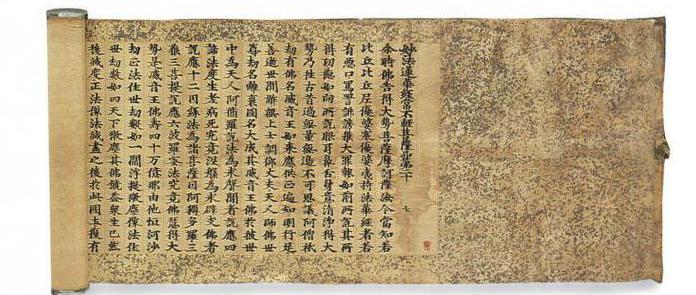 妙法蓮華經常不輕菩薩品第二十
尒時佛告得大勢菩薩摩訶薩汝今當知若
比丘比丘尼優婆塞優婆夷持法華經者若
有惡口罵詈誹謗獲大罪報如前所說其所
得功德如向所說眼耳鼻舌身意清淨得大
勢乃往古昔過無量無邊不可思議阿僧祇
劫有佛名威音王如來應供正遍知明行足
善逝世間解無上士調御丈夫天人師佛世
尊劫名離衰國名大成其威音王佛於彼世
中為天人阿修羅說法為求聲聞者說應四
諦法度生老病死究竟涅槃為求辟支佛者
說應十二因緣法為諸菩薩因阿耨多羅三
藐三菩提說應六波羅蜜法究竟佛慧得大
勢是威音王佛壽四十万億那由他恒河沙
劫正法住世劫數如一閻浮提微塵像法住
世劫數如四天下微塵其佛饒益衆生已然
後滅度正法像法滅盡之後於此國土復有
七